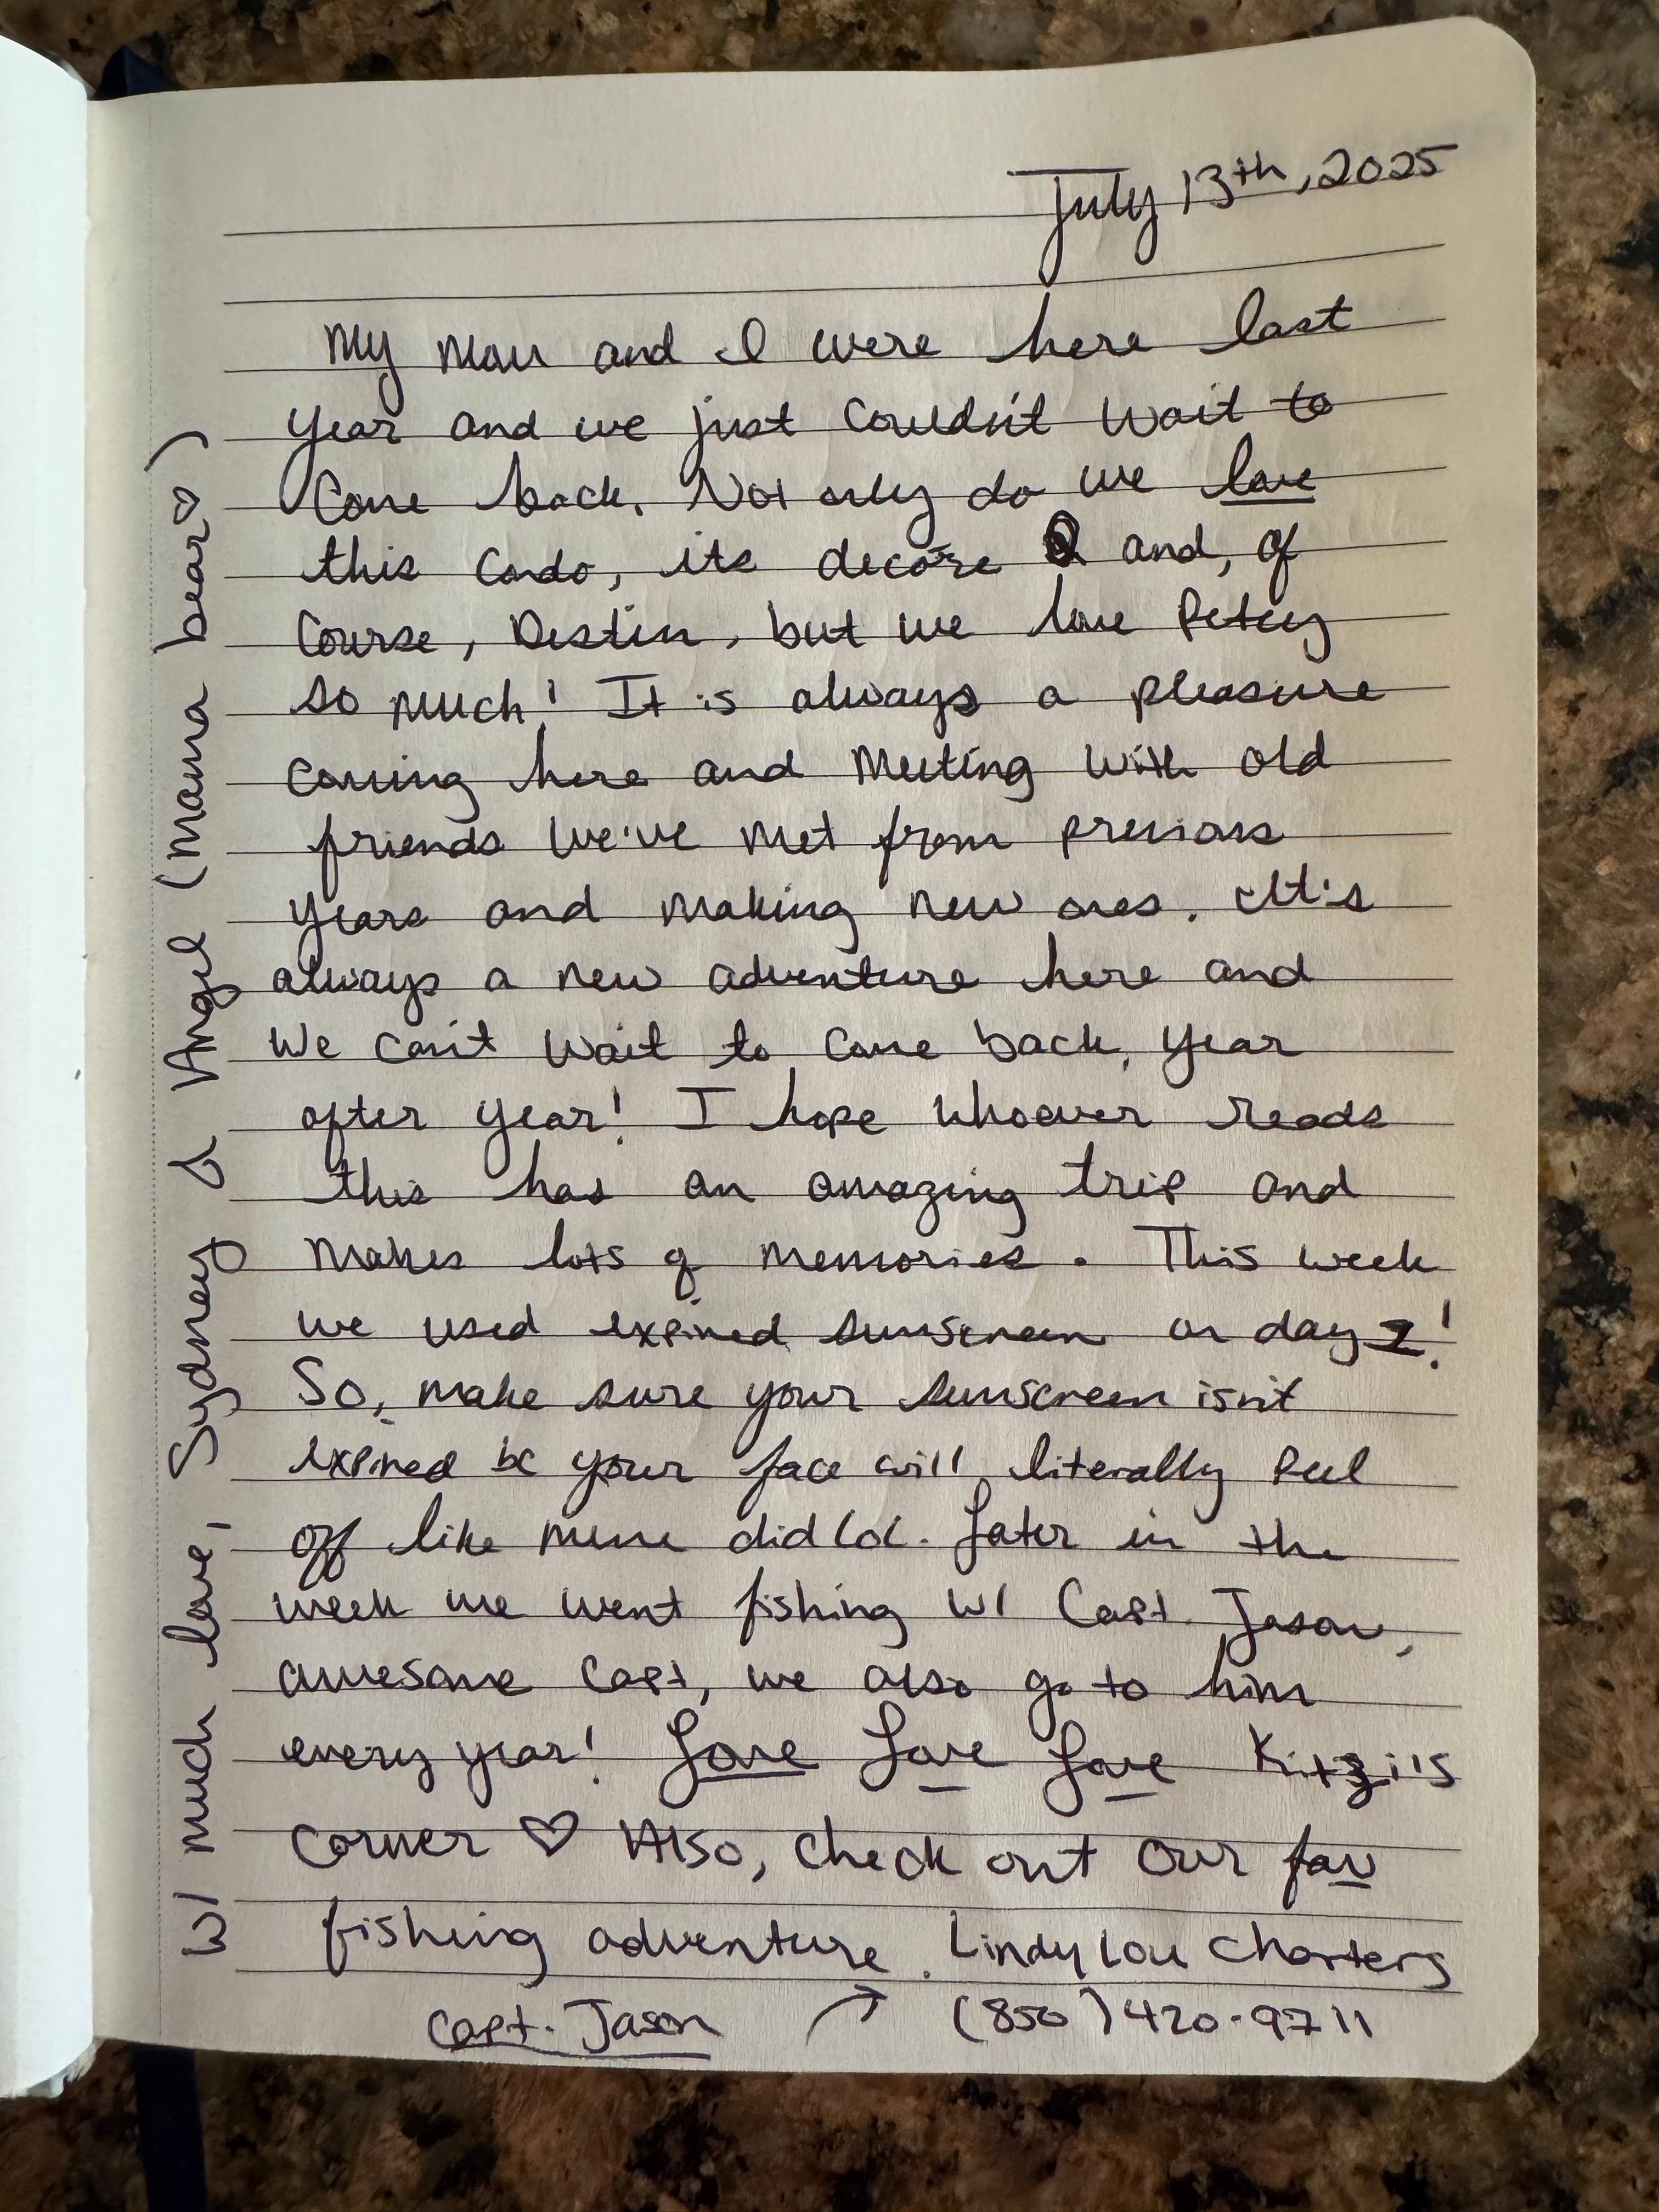 July 13th, 2025
My Mom and I were here last
year and we just couldn't wait to
come back. Not only do we love
this condo, its decore and, of
course, Destin, but we love Petey
so much! It is always a pleasure
coming here and meeting with old
friends we've met from previous
years and making new ones. It's
always a new adventure here and
we can't wait to come back, year
after year! I hope whoever reads
this has an amazing trip and
makes lots of memories. This week
we used expired sunscreen on day 2!
So, make sure your sunscreen isn't
expired bc your face will literally peel
off like mine did lol. Later in the
week we went fishing w/ Capt. Jason,
awesome Capt, we also go to him
every year! Love Love Love Kitzi's
Corner ♡ Also, check out our fav
fishing adventure. Lindy Lou Charters
Capt. Jason → (850) 420-9711
w/ much love, Sydney & Angel (mama bear ♡)